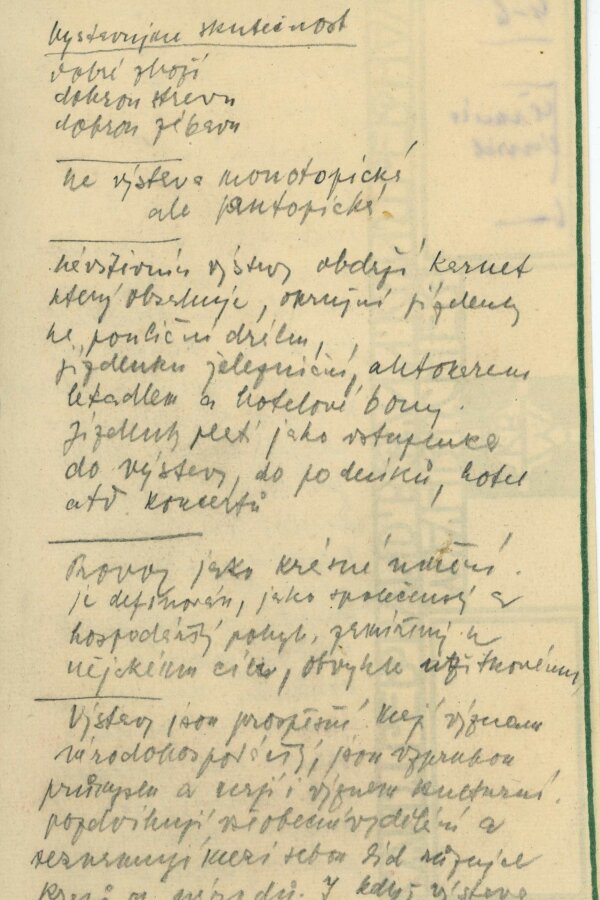 Vystavujem skutečnost
dobré zboží
dobrou stravu
dobrou zábavu
ne výstava monotopická
ale pantopická
návštěvník výstavy obdrží karnet
který obsahuje, okružní jízdenky
na pouliční dráhu,
jízdenku železniční, autokarem
letadlem a hotelové bony.
Jízdenky platí jako vstupenka
do výstavy, do podniků, hotel
atd koncertů
Provoz jako krásné umění.
je definován, jako společenský a
hospodářský pohyb, zaměřený k
nějakému cíli, obvykle užitkovému,
Výstavy jsou prospěšné mají význam
národohospodářský, jsou vzpruhou
průmyslu a mají i význam kulturní.
pozdvihují všeobecné vzdělání a
seznamují mezi sebou lid různých
krajů a národů. I když výstava